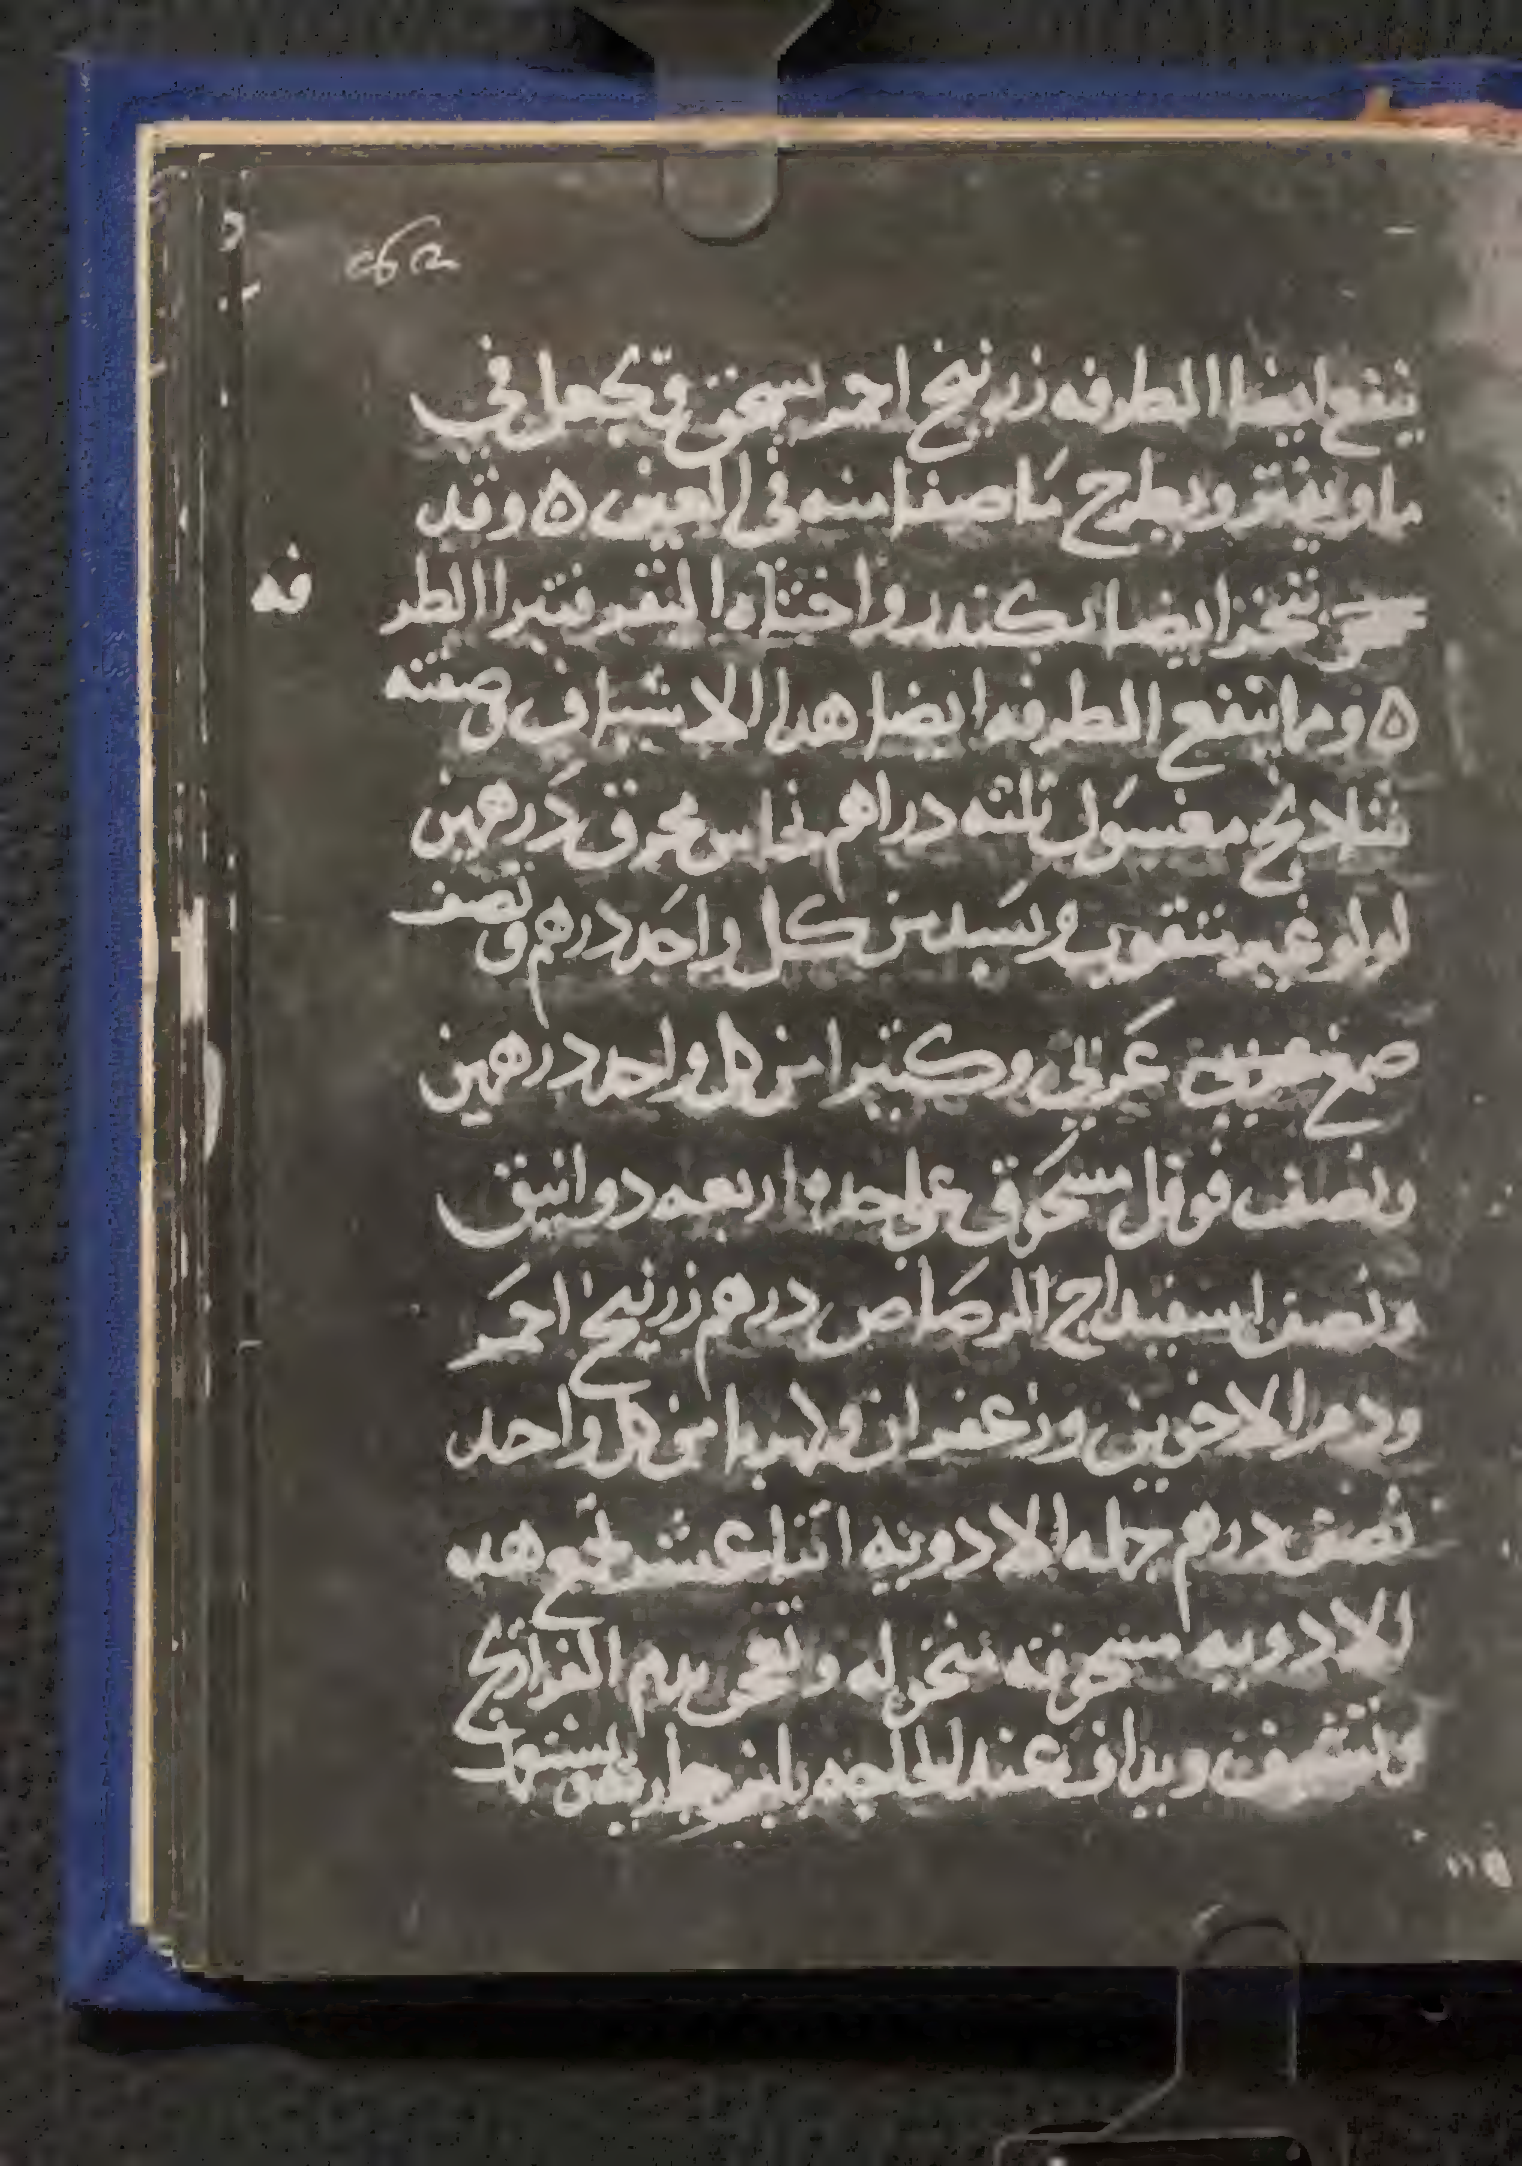 ينفع ايضا الطرفه زرنيخ احمر يسحق و يجعل في
ما ويفتر ويطرح ما صفا منه في العين ه وقد
تبخر ايضا بكندر واختاه البقر فتبرا الطر
فه
ه ومما ينفع الطرفه ايضا هدا الاشياف صفته
شادنج مغسول ثلثه دراهم نحاس محرق درهمين
لولو غير مثقوب وبسد من كل واحد درهم ونصف
صمغ عربي وكثيرا من كل واحد درهمين
ونصف فوفل مسحوق على حده اربعه دوانيق
ونصف اسفيداج الرصاص درهم زرنيخ احمر
ودم الاخوين وزعفران وكهربا من كل واحد
نصف درهم جمله الادويه اثنا عشر تجمع هده
الادويه مسحوقه منخوله وتعجن بدم الفراريج
وتشيف ويداف عند الحاجه بلبن جاريه ويستعمل